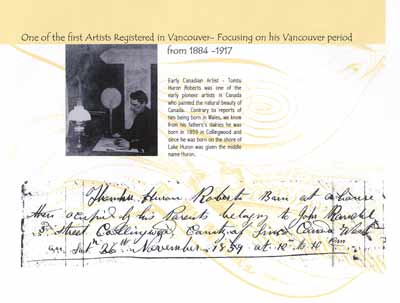 One of the first Artists Registered in Vancouver- Focusing on his Vancouver period
from 1884 -1917
Early Canadian Artist - Tomtu
Huron Roberts was one of the
early pioneer artists in Canada
who painted the natural beauty of
Canada. Contrary to reports of
him being born in Wales, we know
from his father's diaries he was
born in 1859 in Collingwood and
since he was born on the shore of
Lake Huron was given the middle
name Huron.
Huron Roberts Born at a house
then occupied by his Parents belong to John
3rd Street Collingwood, County of Simcoe Canada West
on Sat 26th November 1859 at 10 to 10 pm